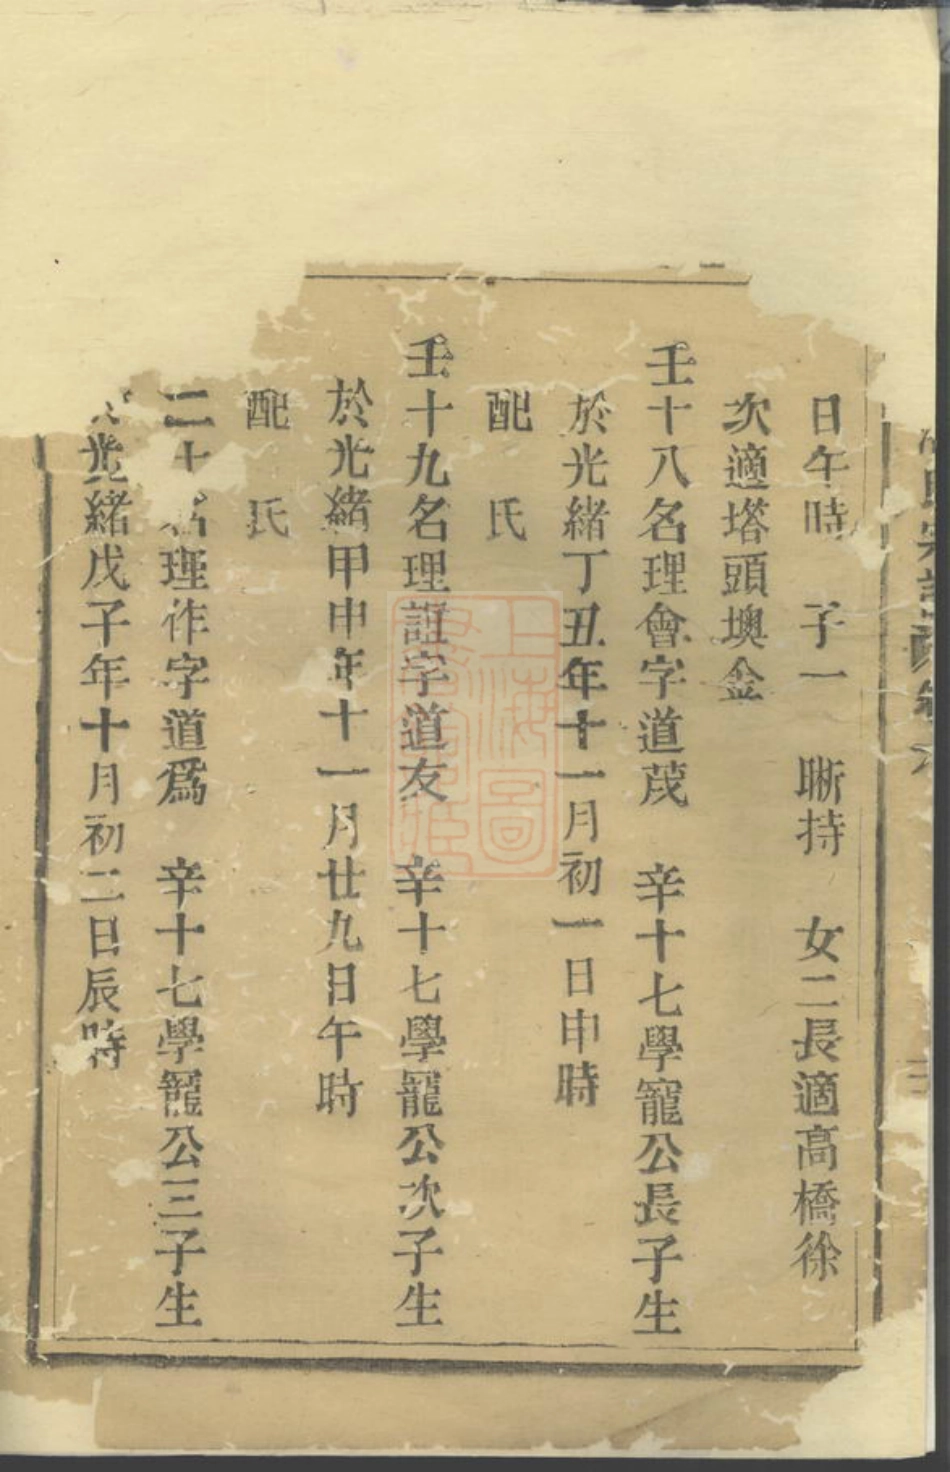 日午時 子一 晣持 女二長適高橋徐
次適塔頭墺金
壬十八名理會字道茂 辛十七學寵公長子生
於光緒丁丑年十一月初一日申時
配 氏
壬十九名理誼字道友 辛十七學寵公次子生
於光緒甲申年十一月廿九日午時
配 氏
二十名理作字道爲 辛十七學寵公三子生
光緒戊子年十月初二日辰時
上海圖